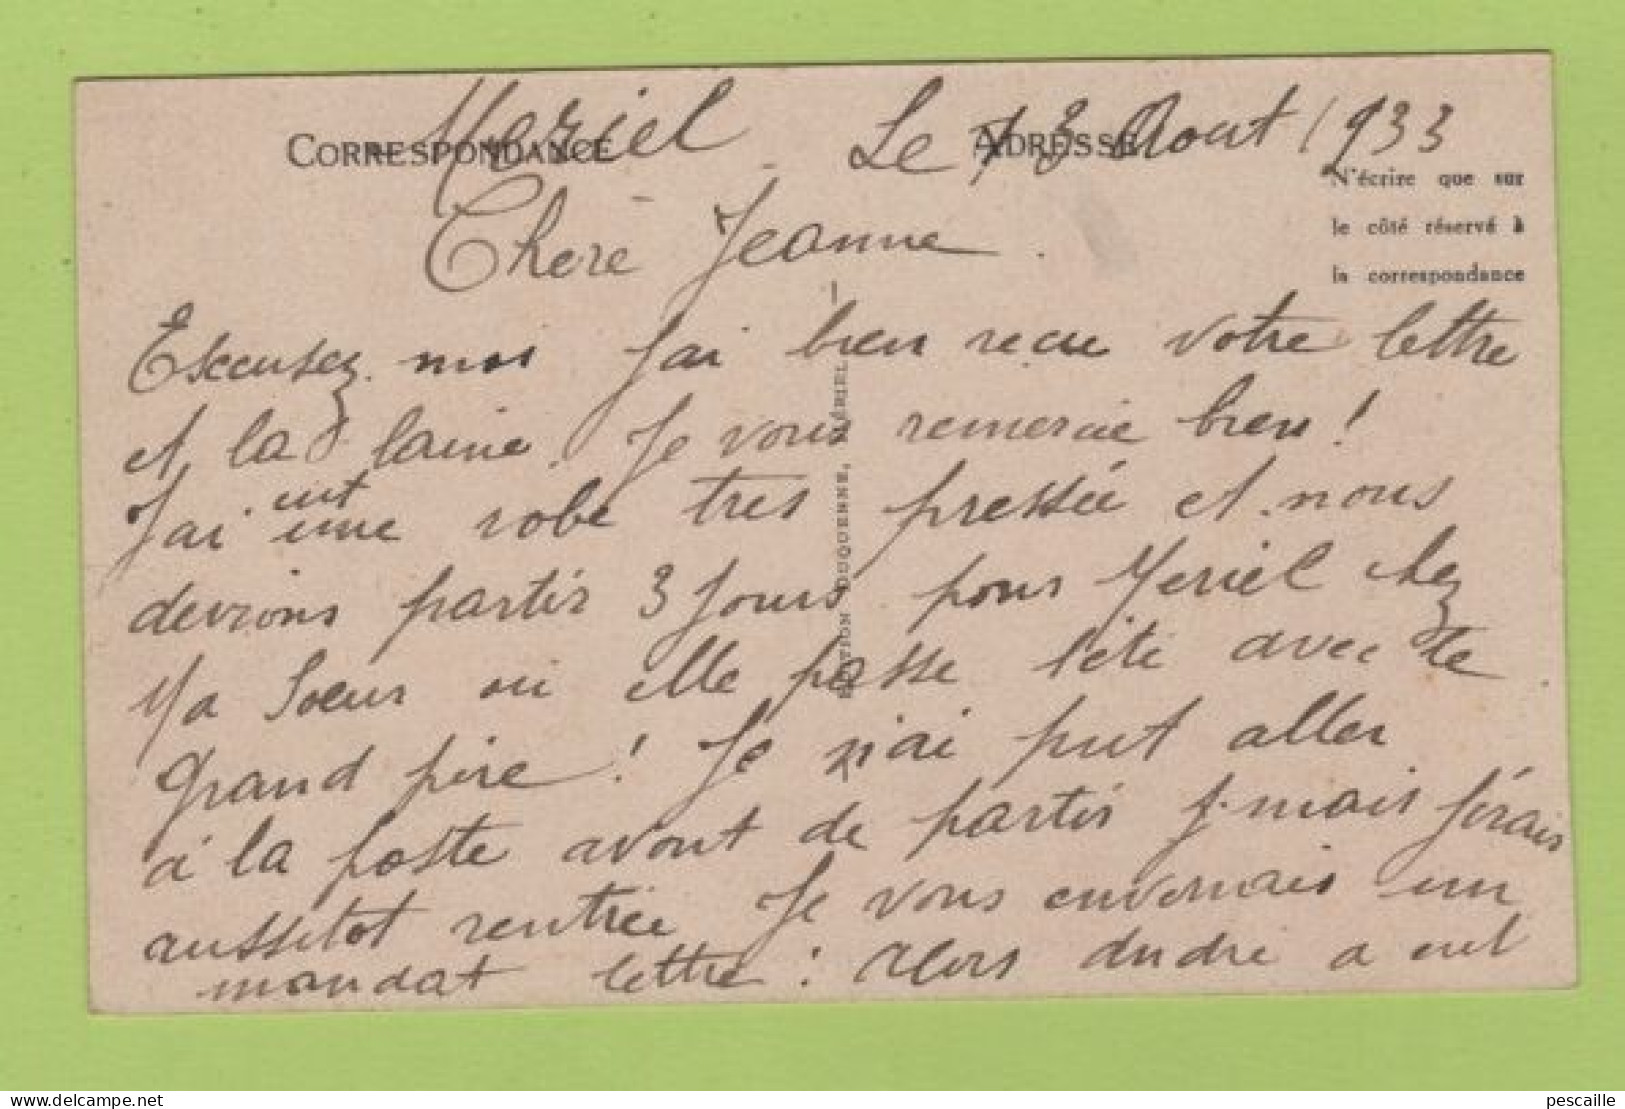 CORRESPONDANCE
ADRESSE
Meriel Le 13 Aout 1933
N'écrire que sur
le côté réservé à
la correspondance
Cheré Jeanne.
Escusez moi J'ai bien recu votre lettre
et la laine. Je vous remercie bien!
J'ai eut une robe tres pressée et nous
devrions partir 3 Jours pour Meriel chez
Ma Soeur ou elle passe l'éte avec le
Grand pére! Je n'ai put aller
a la poste avant de partir mais Jérais
aussitot rentrée Je vous envernais un
mandat lettre: Alors Andre a eut
EDITION DUQUENNE, MÉRIEL
pescaille